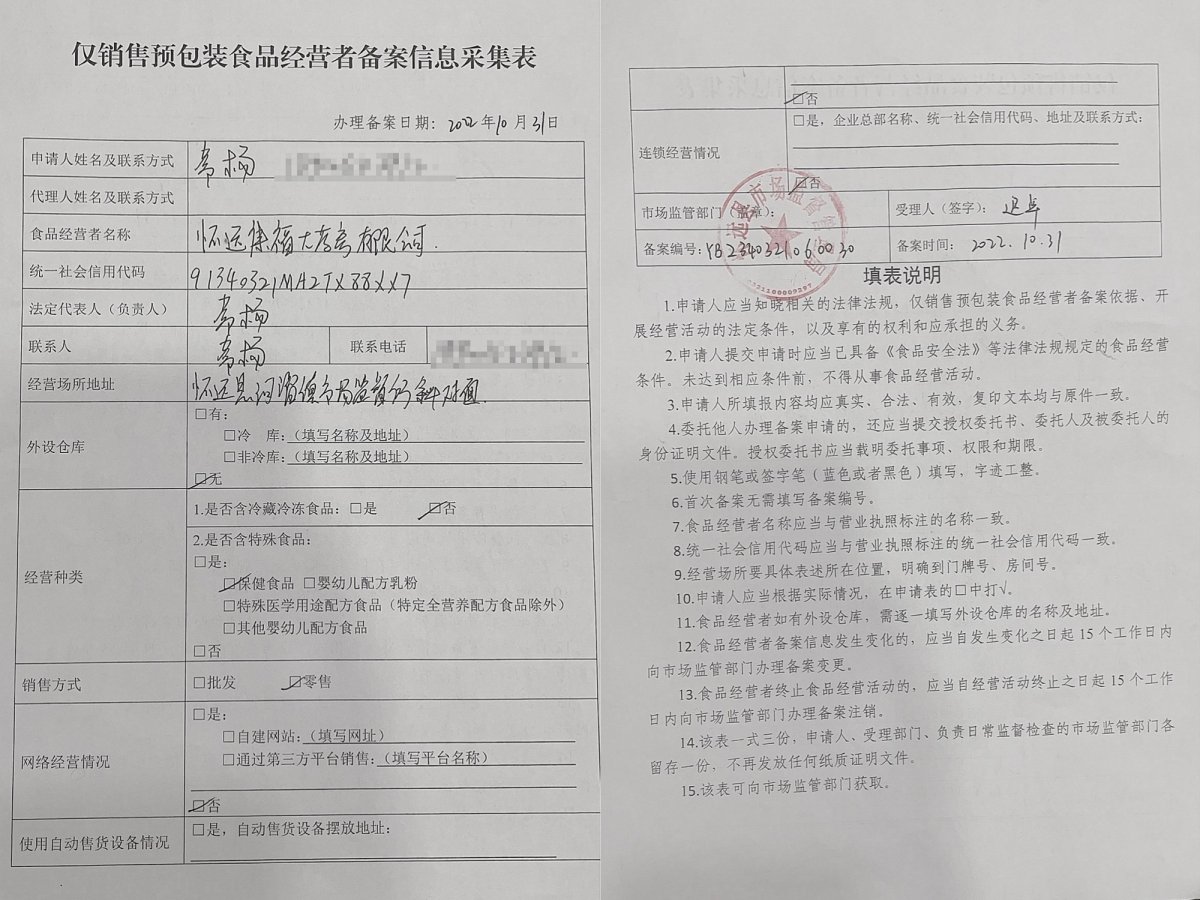 仅销售预包装食品经营者备案信息采集表
办理备案日期：2022年10月31日
申请人姓名及联系方式 常杨
代理人姓名及联系方式
食品经营者名称 怀远集福大药房有限公司.
统一社会信用代码 91340321MA2TX88XX7
法定代表人（负责人） 常杨
联系人 常杨 联系电话
经营场所地址 怀远县河溜镇市场监督所斜对面
外设仓库
□有：
□冷 库：（填写名称及地址）
□非冷库：（填写名称及地址）
☑无
经营种类
1.是否含冷藏冷冻食品：□是 ☑否
2.是否含特殊食品：
□是：
☑保健食品 □婴幼儿配方乳粉
□特殊医学用途配方食品（特定全营养配方食品除外）
□其他婴幼儿配方食品
□否
销售方式 □批发 ☑零售
网络经营情况
□是：
□自建网站：（填写网址）
□通过第三方平台销售：（填写平台名称）
☑否
使用自动售货设备情况 □是，自动售货设备摆放地址：
☑否
连锁经营情况
□是，企业总部名称、统一社会信用代码、地址及联系方式：
☑否
市场监管部门（盖章）： 受理人（签字）：
备案编号：YB23403210600030 备案时间： 2022.10.31
填表说明
1.申请人应当知晓相关的法律法规，仅销售预包装食品经营者备案依据、开
展经营活动的法定条件，以及享有的权利和应承担的义务。
2.申请人提交申请时应当已具备《食品安全法》等法律法规规定的食品经营
条件。未达到相应条件前，不得从事食品经营活动。
3.申请人所填报内容均应真实、合法、有效，复印文本均与原件一致。
4.委托他人办理备案申请的，还应当提交授权委托书、委托人及被委托人的
身份证明文件。授权委托书应当载明委托事项、权限和期限。
5.使用钢笔或签字笔（蓝色或者黑色）填写，字迹工整。
6.首次备案无需填写备案编号。
7.食品经营者名称应当与营业执照标注的名称一致。
8.统一社会信用代码应当与营业执照标注的统一社会信用代码一致。
9.经营场所要具体表述所在位置，明确到门牌号、房间号。
10.申请人应当根据实际情况，在申请表的□中打√。
11.食品经营者如有外设仓库，需逐一填写外设仓库的名称及地址。
12.食品经营者备案信息发生变化的，应当自发生变化之日起 15 个工作日内
向市场监管部门办理备案变更。
13.食品经营者终止食品经营活动的，应当自经营活动终止之日起 15 个工作
日内向市场监管部门办理备案注销。
14.该表一式三份，申请人、受理部门、负责日常监督检查的市场监管部门各
留存一份，不再发放任何纸质证明文件。
15.该表可向市场监管部门获取。